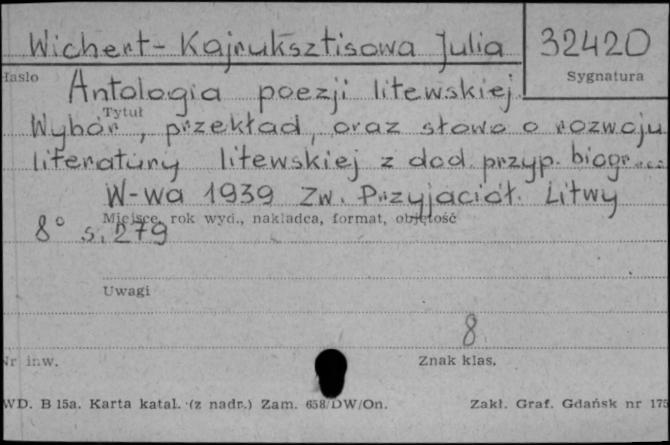 Wichert-Kajruksztisowa Julia 32420
Hasło Sygnatura
Antologia poezji litewskiej.
Tytuł
Wybór, przekład, oraz słowo o rozwoju
literatury litewskiej z dod. przyp. biogr...
W-wa 1939 Zw. Przyjaciół. Litwy
Miejsce, rok wyd., nakładca, format, objętość
8° s. 279
Uwagi
8.
Nr inw. Znak klas.
WD. B 15a. Karta katal. (z nadr.) Zam. 658/DW/On. Zakł. Graf. Gdańsk nr 175